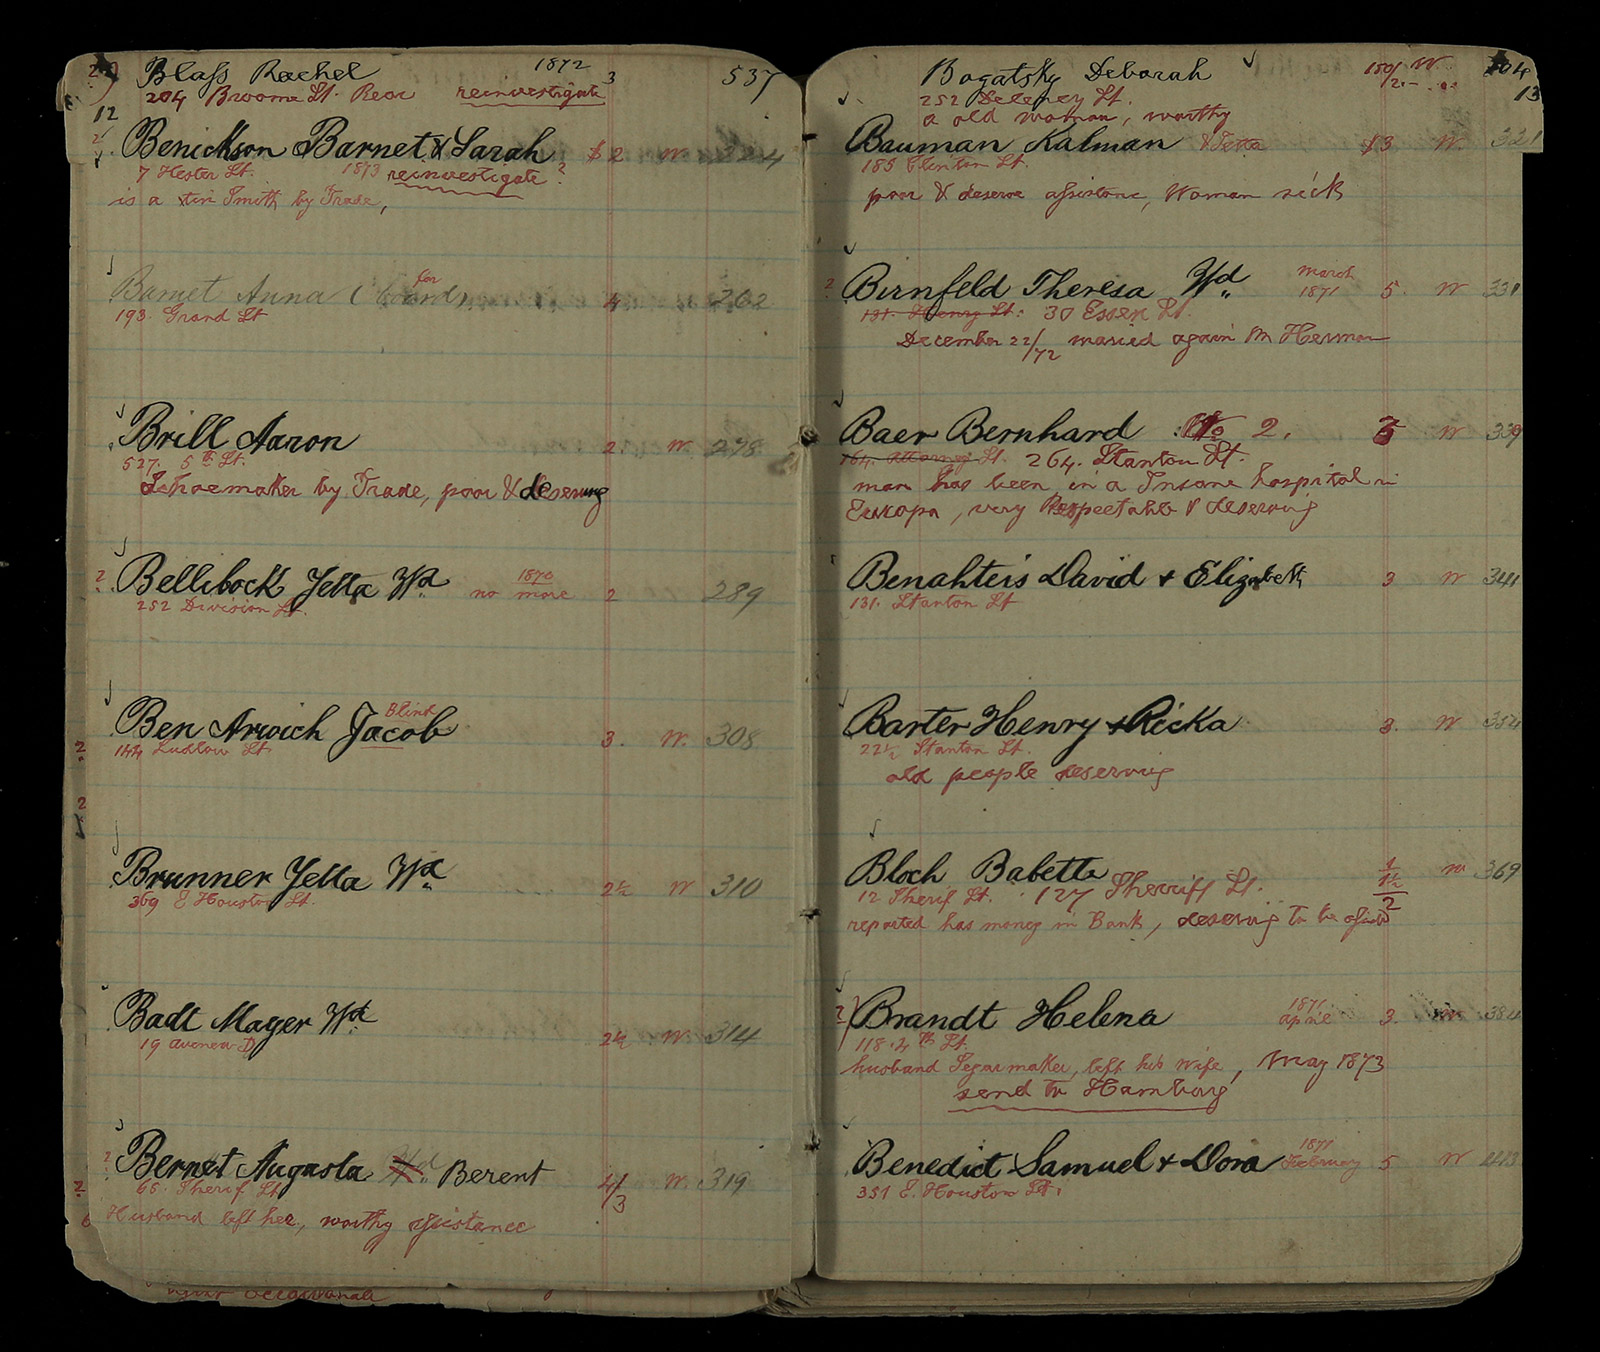 Blass Rachel 1872 3 537
204 Broome St. Rear reinvestigate
12
Benickson Barnet & Sarah $2 W. 324
7 Hester St. 1873 reinvestigate?
is a tin Smith by Trade,
Barnet Anna (for board) 4 262
193. Grand St
Brill Aaron 2 W. 278
527. 5th St.
Shoemaker by Trade, poor & deserving
Bellibock Yetta Wd. no more 1870 2 289
252 Division St.
Ben Arwich Jacob Blind 3. W. 308
144 Ludlow St.
Brunner Yetta Wd. 2½ W 310
369 E Houston St.
Badt Mayer Wd. 2½ W. 314
19 Avenue D
Bernet Augasta Wd. Berent 4/3 W. 319
68. Sherif St
Husband left her, worthy assistance
Bogatsky Deborah 150/ W
13
252 Delency St.
a old woman, worthy
Bauman Kalman & Yetta $3 W. 321
185 Clinton St.
poor & deserve assistance, Woman sick
Birnfeld Theresa Wd. March 1871 5. W 331
131. Henry St: 30 Essex St.
December 22/72 maried again M Herman
Baer Bernhard No 2. W 339
164. Attorney St. 264. Stanton St.
man has been in a Insane hospital in
Europa, very Respectable & deserving
Benahteis David & Elizabeth 3 W 344
131. Stanton St
Barter Henry & Ricka 3. W 354
22½ Stanton St.
old people deserving
Bloch Babetta 1½ 2 W 369
12 Sherif St. 127 Sherriff St.
reported has money in Bank, deserving to be assist
Brandt Helena 1871 Aprile 3. W 384
118. 4th St.
husband Segarmaker, left his wife, May 1873
send to Hamburg
Benedict Samuel & Dora 1871 February 5 W 413
351 E. Houston St.